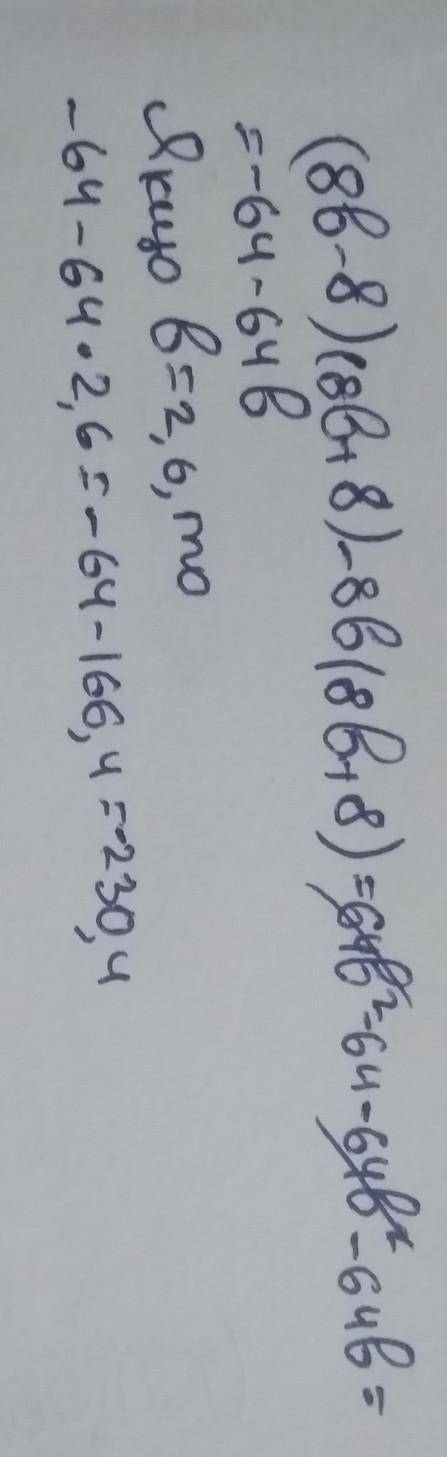 (8b-8)(8b+8)-8b(8b+8)=64b²-64-64b²-64b=
=-64-64b
Якщо b=2,6, то
-64-64•2,6=-64-166,4=-230,4